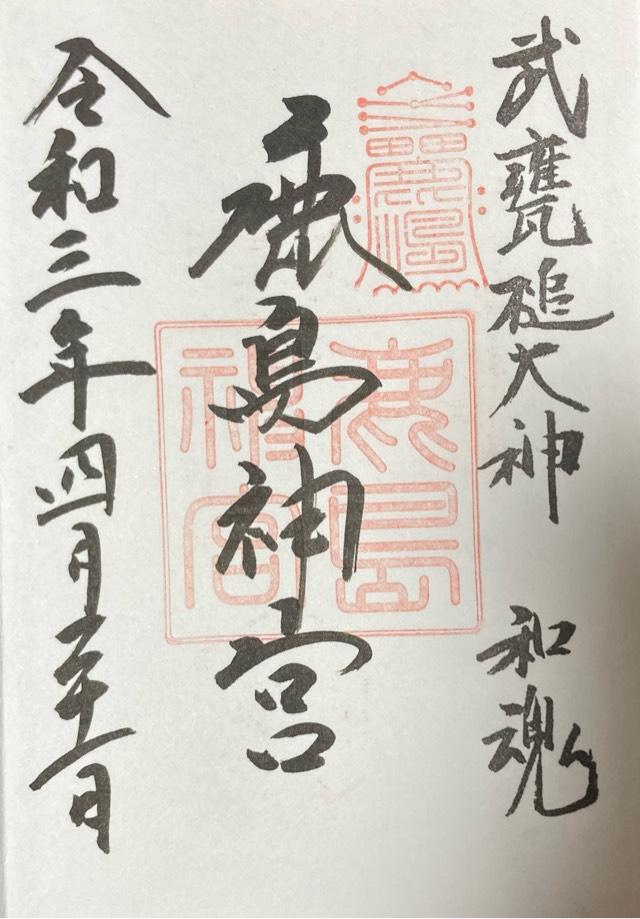 武甕槌大神　和魂
鹿島神宮
鹿島神宮
令和三年四月二十一日